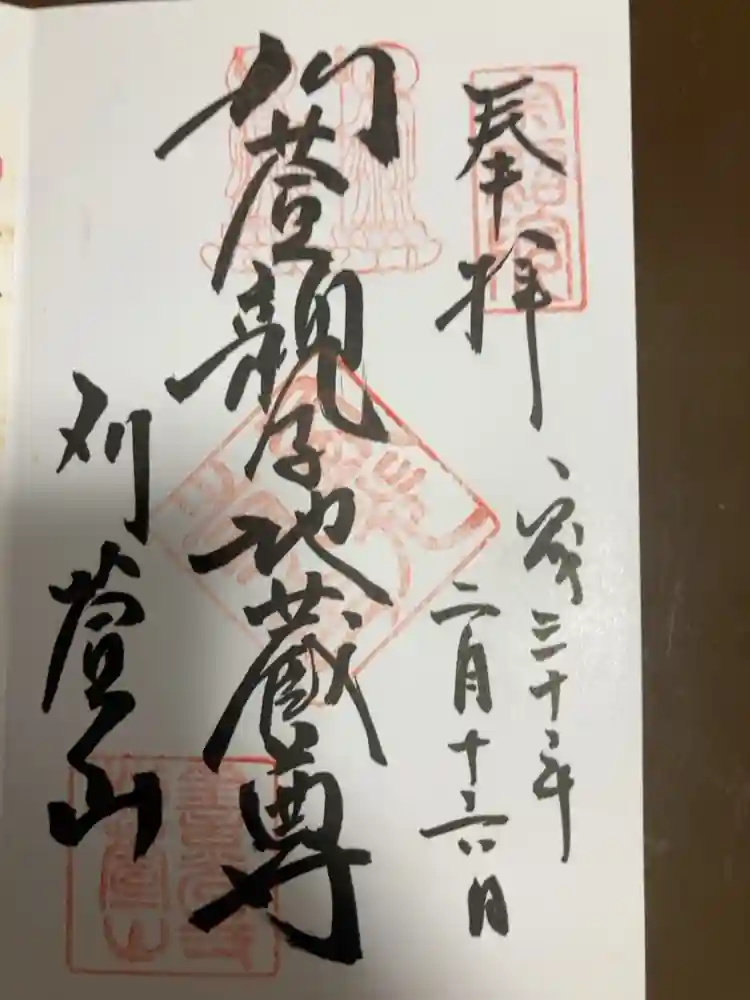 奉拝
平成三十年
二月十六日
刈萱親子地蔵尊
刈萱山